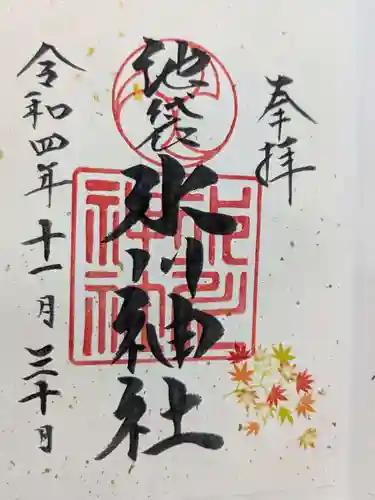 奉拝
池袋
氷川神社
令和四年十一月三十日